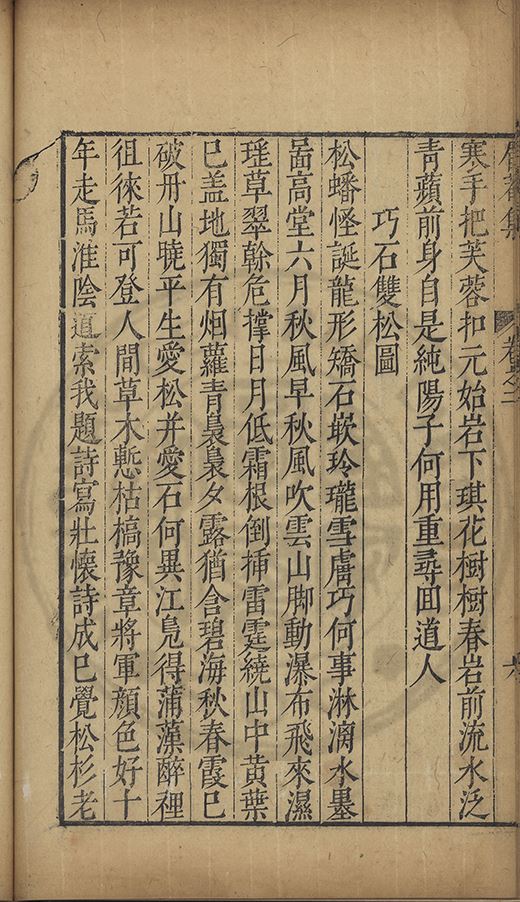 集 卷之二
寒手把芙蓉扣元始岩下琪花樹樹春岩前流水泛
青蘋前身自是純陽子何用重尋回道人
巧石雙松圖
松蟠怪誕龍形矯石嵌玲瓏雪膚巧何事淋漓水墨
啚高堂六月秋風早秋風吹雲山脚動瀑布飛來濕
瑤草翠榦危撐日月低霜根倒揷雷霆繞山中黃葉
已盖地獨有烟蘿青裊裊夕露猶含碧海秋春霞已
破丹山曉平生愛松并愛石何異江鳬得蒲藻醉裡
徂徠若可登人間草木慙枯槁豫章將軍顔色好十
年走馬淮陰道索我題詩寫壯懷詩成已覺松杉老